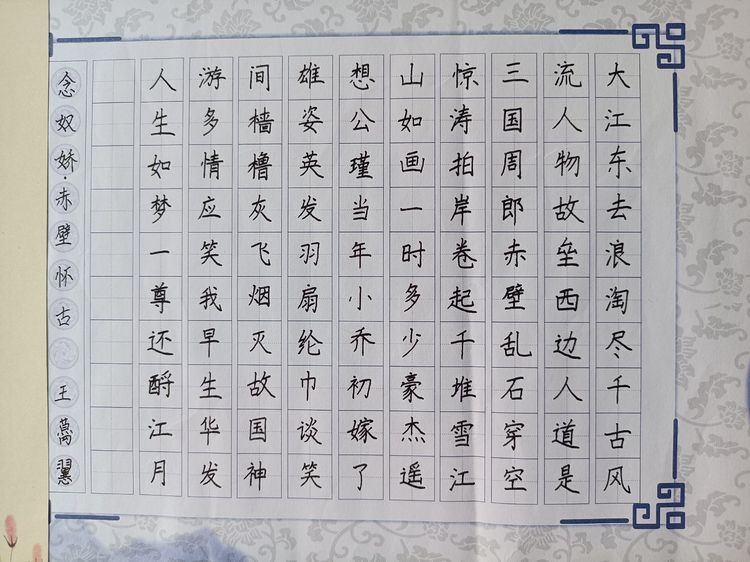 大江东去浪淘尽千古风
流人物故垒西边人道是
三国周郎赤壁乱石穿空
惊涛拍岸卷起千堆雪江
山如画一时多少豪杰遥
想公瑾当年小乔初嫁了
雄姿英发羽扇纶巾谈笑
间樯橹灰飞烟灭故国神
游多情应笑我早生华发
人生如梦一尊还酹江月
念奴娇·赤壁怀古 王